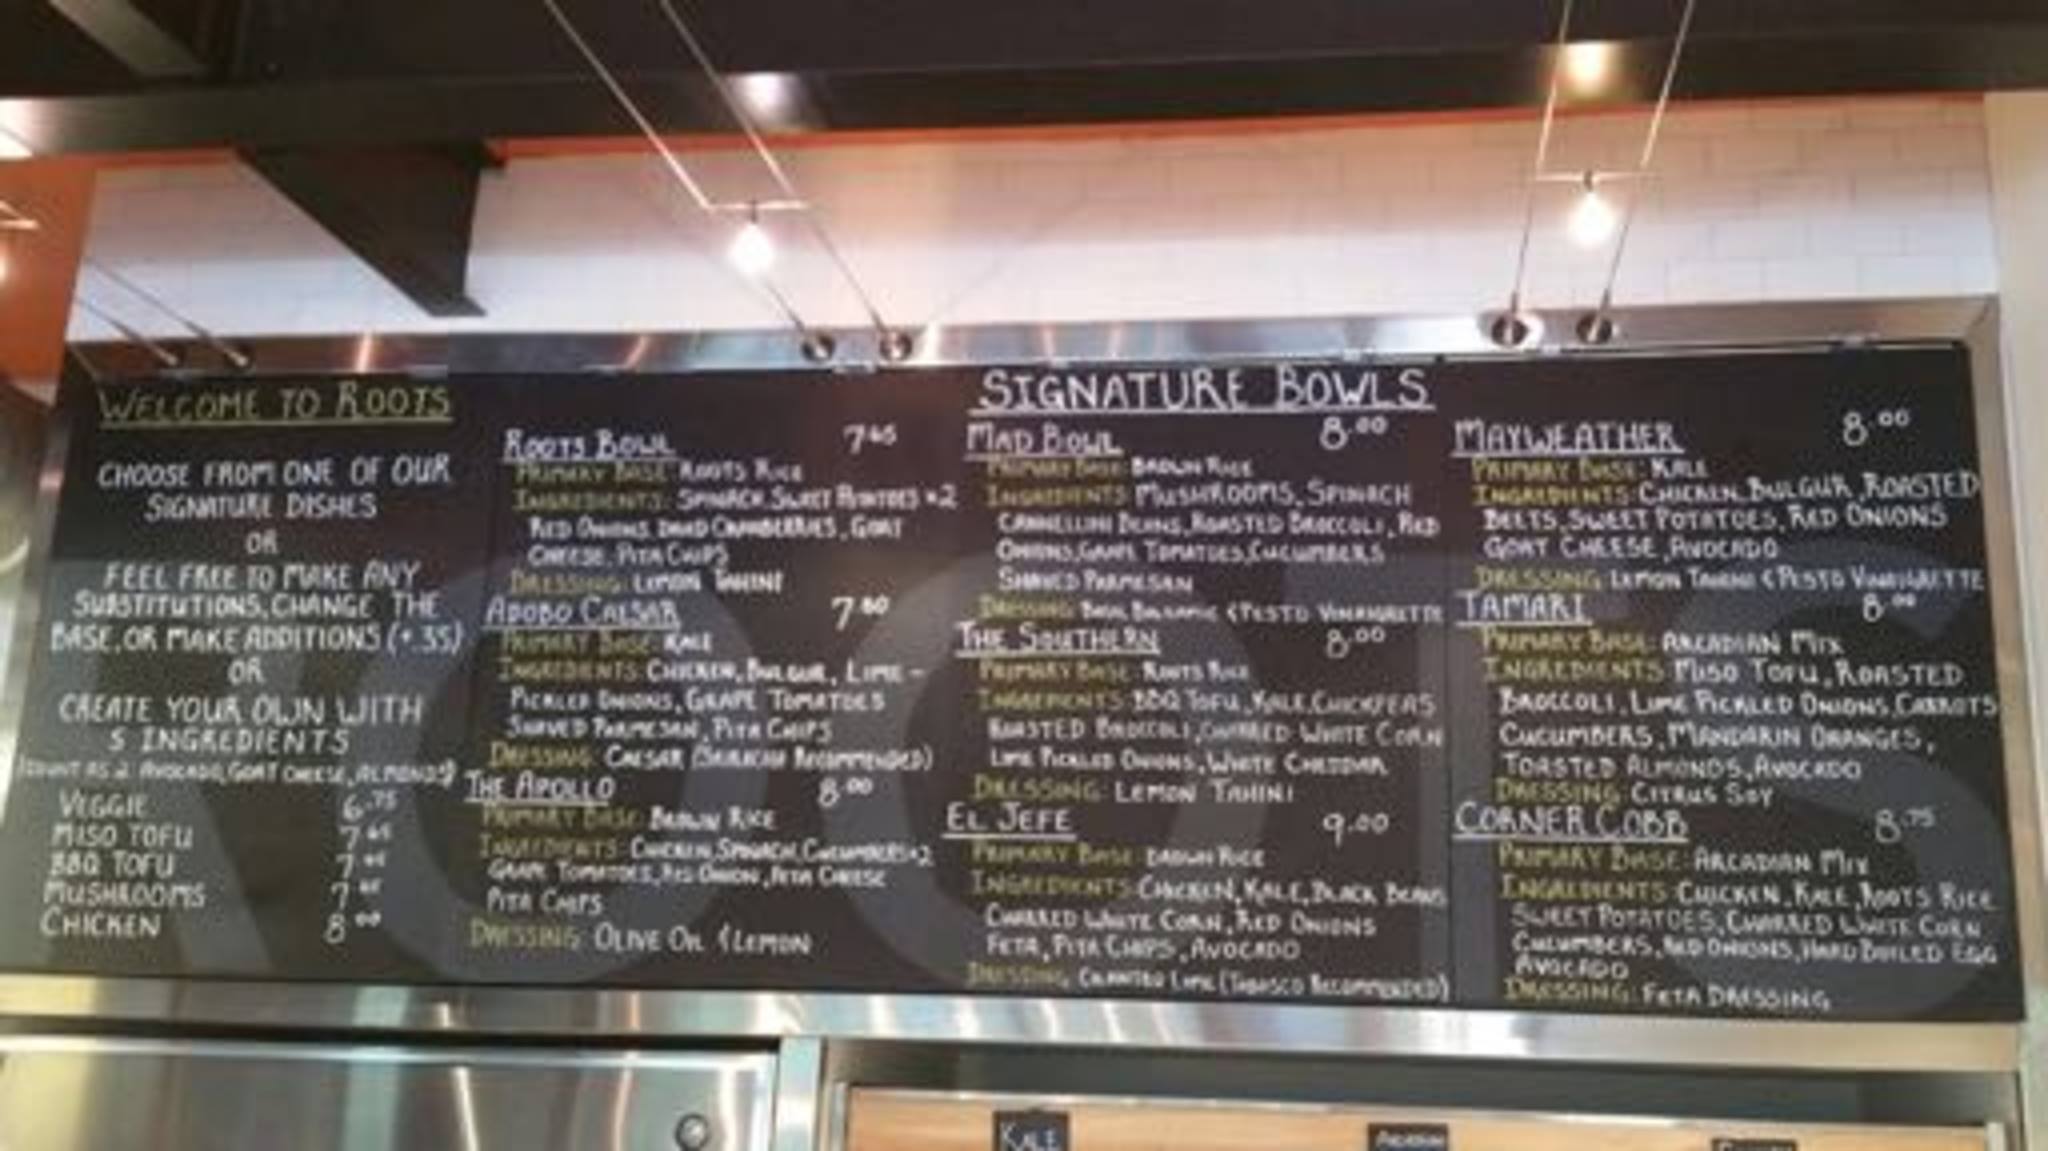 WELCOME TO ROOTS
CHOOSE FROM ONE OF OUR
SIGNATURE DISHES
OR
FEEL FREE TO MAKE ANY
SUBSTITUTIONS, CHANGE THE
BASE, OR MAKE ADDITIONS (+.35)
OR
CREATE YOUR OWN WITH
5 INGREDIENTS
(COUNT AS 2: AVOCADO, GOAT CHEESE, ALMONDS)
VEGGIE 6.75
MISO TOFU
BBQ TOFU
MUSHROOMS
CHICKEN 8.00
SIGNATURE BOWLS
ROOTS BOWL
PRIMARY BASE: ROOTS RICE
INGREDIENTS: SPINACH, SWEET POTATOES x2
RED ONIONS, DRIED CRANBERRIES, GOAT
CHEESE, PITA CHIPS
DRESSING: LEMON TAHINI
ADOBO CAESAR
PRIMARY BASE: KALE
INGREDIENTS: CHICKEN, BULGUR, LIME-
PICKLED ONIONS, GRAPE TOMATOES
SHAVED PARMESAN, PITA CHIPS
DRESSING: CAESAR (SRIRACHA RECOMMENDED)
THE APOLLO 8.00
PRIMARY BASE: BROWN RICE
INGREDIENTS: CHICKEN, SPINACH, CUCUMBERS x2
GRAPE TOMATOES, RED ONION, FETA CHEESE
PITA CHIPS
DRESSING: OLIVE OIL & LEMON
MAD BOWL 8.00
PRIMARY BASE: BROWN RICE
INGREDIENTS: MUSHROOMS, SPINACH
CANNELLINI BEANS, ROASTED BROCCOLI, RED
ONIONS, GRAPE TOMATOES, CUCUMBERS
SHAVED PARMESAN
DRESSING: BASIL BALSAMIC & PESTO VINAIGRETTE
THE SOUTHERN 8.00
PRIMARY BASE: ROOTS RICE
INGREDIENTS: BBQ TOFU, KALE, CHICKPEAS
ROASTED BROCCOLI, CHARRED WHITE CORN
LIME PICKLED ONIONS, WHITE CHEDDAR
DRESSING: LEMON TAHINI
EL JEFE 9.00
PRIMARY BASE: BROWN RICE
INGREDIENTS: CHICKEN, KALE, BLACK BEANS
CHARRED WHITE CORN, RED ONIONS
FETA, PITA CHIPS, AVOCADO
DRESSING: CILANTRO LIME (TABASCO RECOMMENDED)
MAYWEATHER 8.00
PRIMARY BASE: KALE
INGREDIENTS: CHICKEN, BULGUR, ROASTED
BEETS, SWEET POTATOES, RED ONIONS
GOAT CHEESE, AVOCADO
DRESSING: LEMON TAHINI & PESTO VINAIGRETTE
TAMARI 8.00
PRIMARY BASE: ARCADIAN MIX
INGREDIENTS: MISO TOFU, ROASTED
BROCCOLI, LIME PICKLED ONIONS, CARROTS
CUCUMBERS, MANDARIN ORANGES,
TOASTED ALMONDS, AVOCADO
DRESSING: CITRUS SOY
CORNER COBB 8.75
PRIMARY BASE: ARCADIAN MIX
INGREDIENTS: CHICKEN, KALE, ROOTS RICE
SWEET POTATOES, CHARRED WHITE CORN
CUCUMBERS, RED ONIONS, HARD BOILED EGG
AVOCADO
DRESSING: FETA DRESSING
KALE
ARCADIAN